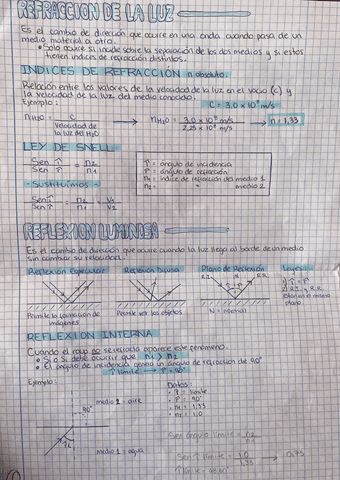 REFRACCION DE LA LUZ
Es el cambio de dirección que ocurre en una onda cuando pasa de un
medio material a otro.
• Solo ocurre si incide sobre la separación de los dos medios y si estos
tienen indices de refracción distintos.
INDICES DE REFRACCIÓN n absoluto:
Relación entre los valores de la velocidad de la luz en el vacío (c) y
la velocidad de la luz del medio conocido.
Ejemplo: C = 3,0 x 10⁸ m/s
nH₂O = c / Velocidad de la luz del H₂O → nH₂O = 3,0 x 10⁸ m/s / 2,25 x 10⁸ m/s → n = 1,33
LEY DE SNELL
Sen î / Sen r̂ = n₂ / n₁
î = ángulo de incidencia
r̂ = ángulo de refracción
n₁ = indice de refracción del medio 1
n₂ = " medio 2
- SUSTITUIMOS -
Sen î / Sen r̂ = n₂ / n₁ = V₁ / V₂
REFLEXION LUMINOSA
Es el cambio de dirección que ocurre cuando la luz llega al borde de un medio
sin cambiar su velocidad.
Reflexión Especular Reflexión Difusa Plano de Reflexión Leyes:
R.I. N R.R.
1) î = r̂
2) R.I. y R.R
están en el mismo
plano
Permite la formación de
imágenes
Permite ver los objetos
N = normal
REFLEXION INTERNA
Cuando el rayo no se refracta aparece este fenómeno.
• Si o Si debe ocurrir que n₁ > n₂
• El ángulo de incidencia genera un ángulo de refracción de 90°
î límite → r̂ = 90°
Ejemplo:
Datos:
• î = límite
• r̂ = 90°
• n₁ = 1,33
• n₂ = 1,0
medio 2 = aire
90°
medio 1 = agua
îL
Sen ángulo límite = n₂ / n₁
Sen î límite = 1,0 / 1,33 → 0,75
î límite =